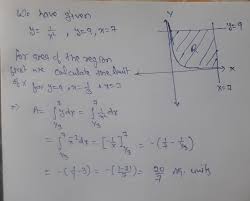 We have given
y = 1/x², y = 9, x = 7
for area of the region
first we calculate the limit
of x for y = 9, x = 1/3, x = 7
⇒ A = ∫_{1/3}^{7} y dx = ∫_{1/3}^{7} 1/x² dx
= ∫_{1/3}^{7} x⁻² dx = [-1/x]_{1/3}^{7} = -(1/7 - 1/1/3)
= -(1/7 - 3) = -(1-21/7) = 20/7 sq. units
Y
y = 9
R
X
x = 7